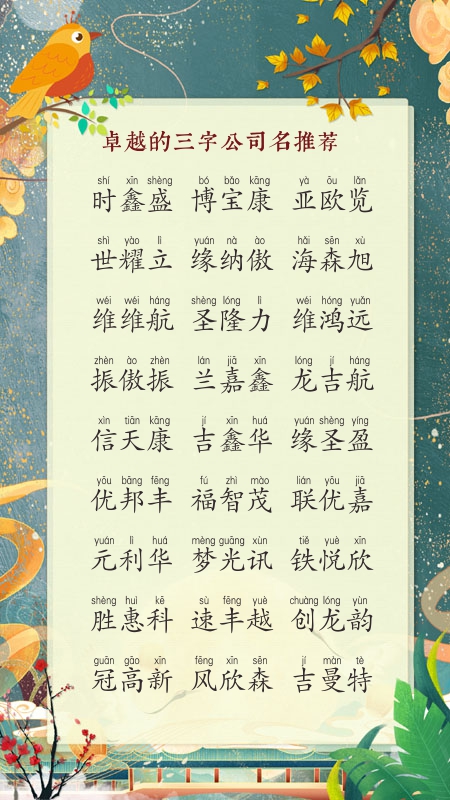 卓越的三字公司名推荐
shí xīn shèng bó bǎo kāng yà ōu lǎn
时鑫盛 博宝康 亚欧览
shì yào lì yuán nà ào hǎi sēn xù
世耀立 缘纳傲 海森旭
wéi wéi háng shèng lóng lì wéi hóng yuǎn
维维航 圣隆力 维鸿远
zhèn ào zhèn lán jiā xīn lóng jí háng
振傲振 兰嘉鑫 龙吉航
xìn tiān kāng jí xīn huá yuán shèng yíng
信天康 吉鑫华 缘圣盈
yōu bāng fēng fú zhì mào lián yōu jiā
优邦丰 福智茂 联优嘉
yuán lì huá mèng guāng xùn tiě yuè xīn
元利华 梦光讯 铁悦欣
shèng huì kē sù fēng yuè chuàng lóng yùn
胜惠科 速丰越 创龙韵
guān gāo xīn fēng xīn sēn jí màn tè
冠高新 风欣森 吉曼特